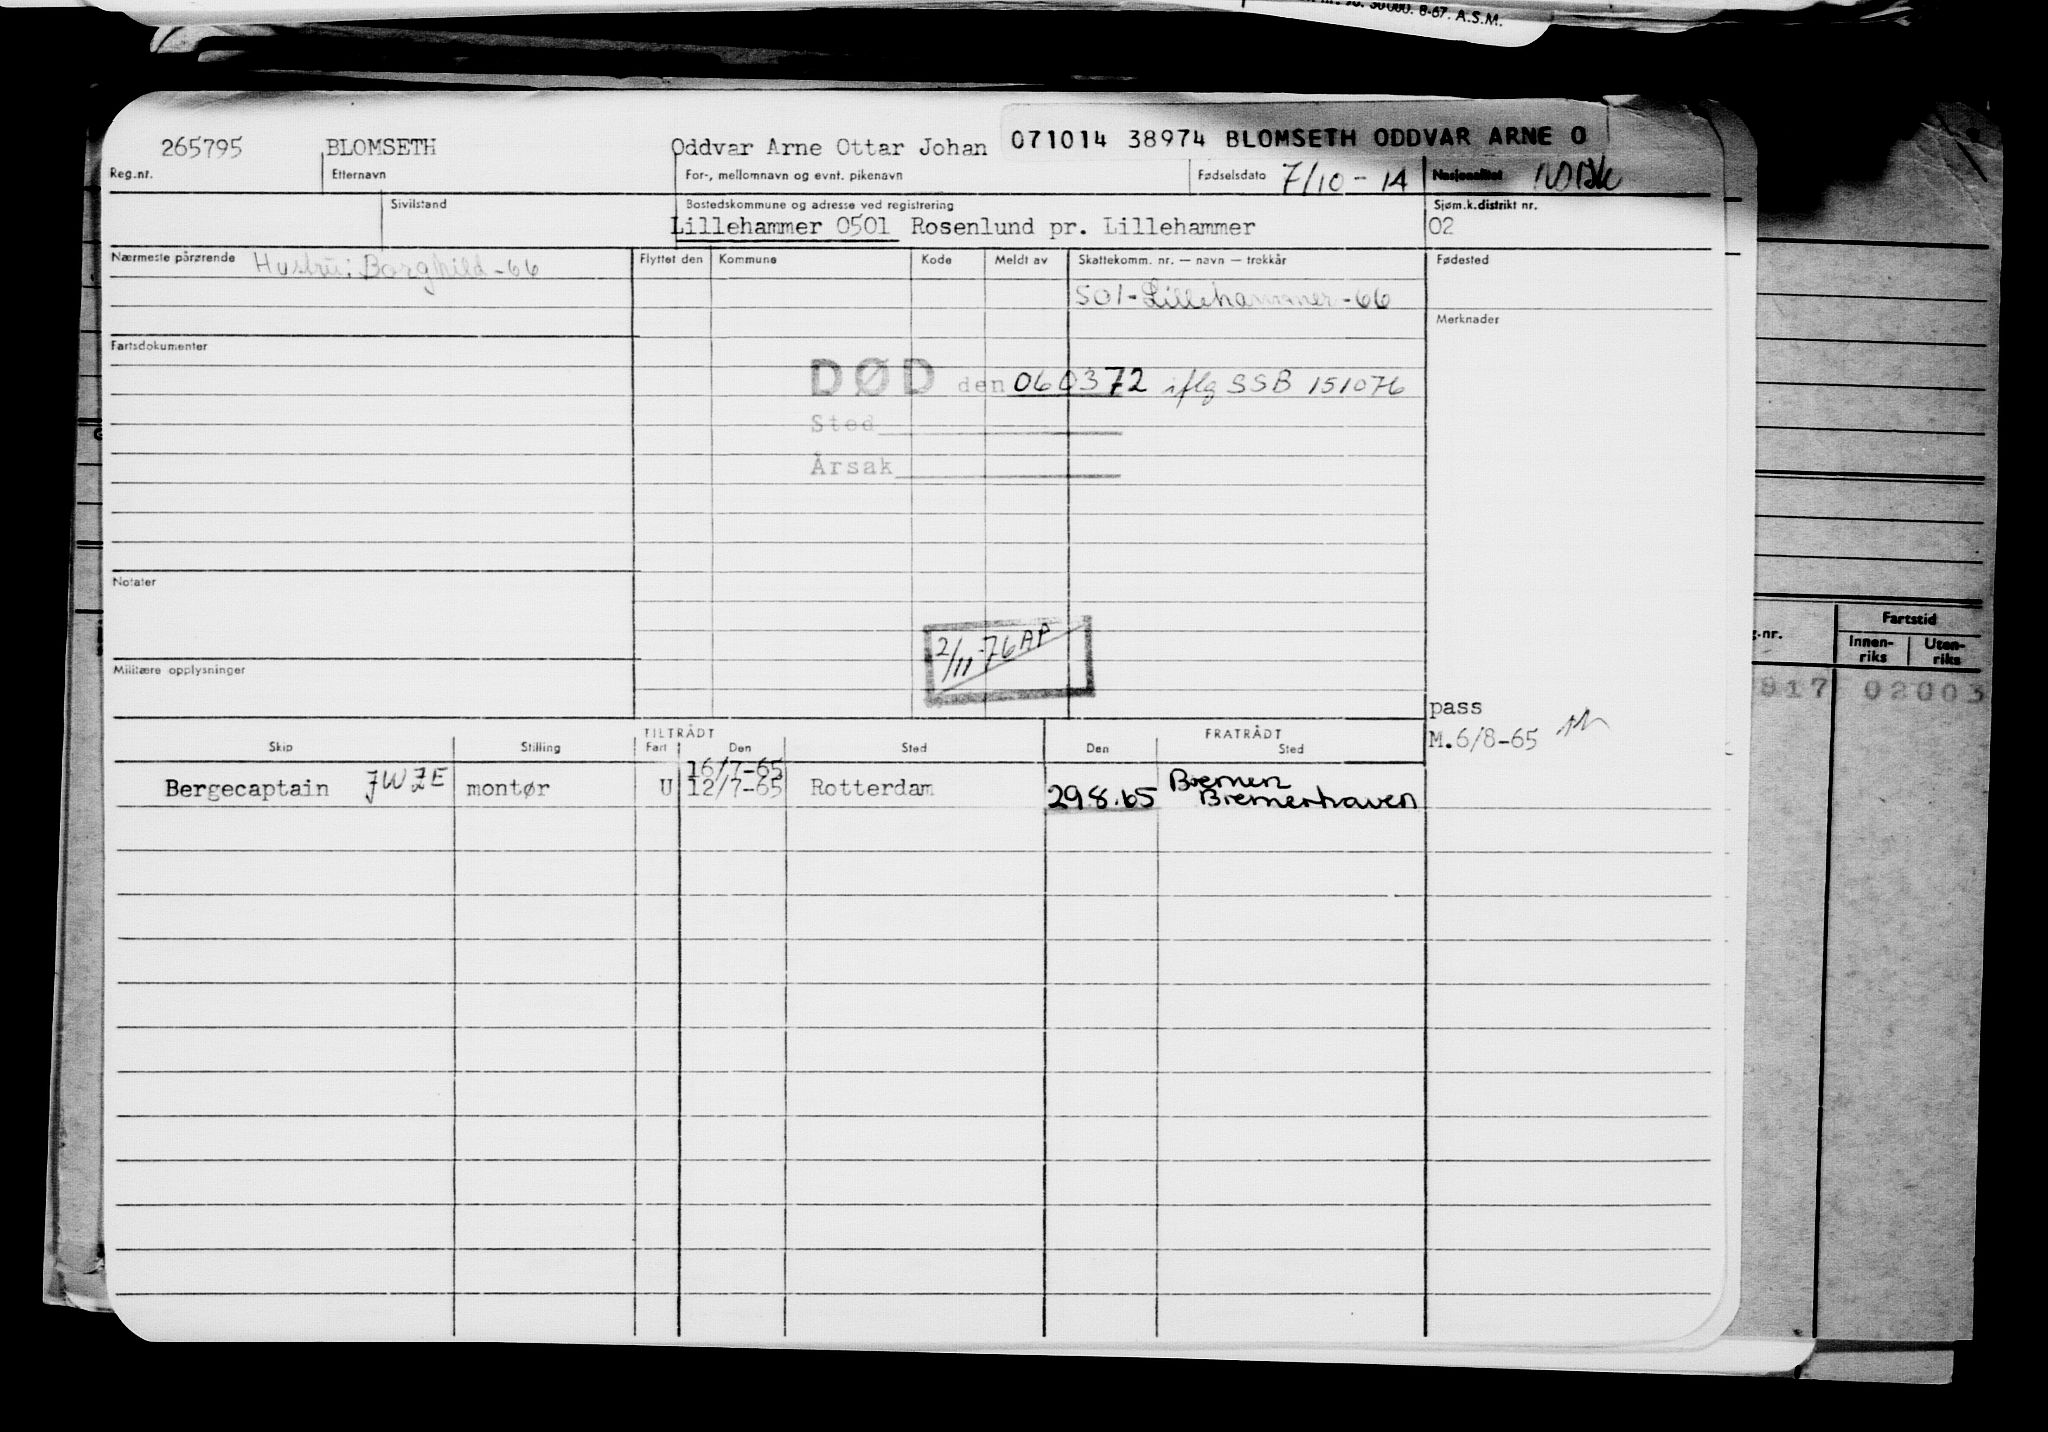 50000. 8-67. A.S.M.
265795 BLOMSETH Oddvar Arne Ottar Johan 071014 38974 BLOMSETH ODDVAR ARNE O
Reg.nr. Etternavn For-, mellomnavn og evnt. pikenavn Fødselsdato 7/10-14 Nasjonalitet norsk
Sivilstand Bostedskommune og adresse ved registrering Sjøm.k.distrikt nr.
Lillehammer 0501 Rosenlund pr. Lillehammer 02
Nærmeste pårørende Hustru: Borghild -66 Flyttet den Kommune Kode Meldt av Skattekomm. nr. — navn — trekkår Fødested
501-Lillehammer-66
Merknader
Fartsdokumenter
DØD den 060372 iflg SSB 151076
Sted
Årsak
Notater
2/11-76 AP
Militære opplysninger
pass
M.6/8-65
TILTRÅDT FRATRÅDT
Skip Stilling Fart Den Sted Den Sted
16/7-65 Bremen
Bergecaptain JWZE montør U 12/7-65 Rotterdam 29.8.65 Bremerhaven
Fartstid
g.nr. Innen-riks Uten-riks
817 02003